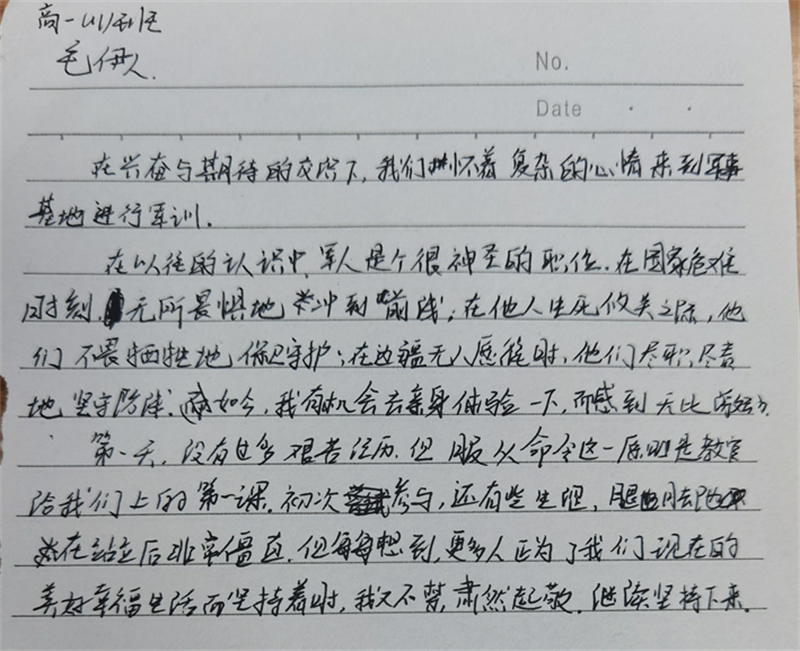 高一(11)班
毛伊人.
No.
Date
在兴奋与期待的交际下,我们怀着复杂的心情来到军事
基地进行军训.
在以往的认识中,军人是个很神圣的职位.在国家危难
时刻,无所畏惧地冲到前线;在他人生死攸关之际,他
们不畏牺牲地保卫守护;在边疆无人愿往时,他们尽职尽责
地坚守防线.而如今,我有机会去亲身体验一下,而感到无比
第一天,没有过多艰苦经历.但服从命令这一原则是教官
给我们上的第一课.初次参与,还有些生疏,腿
在站立后非常僵直.但每每想到,更多人正为了我们现在的
美好幸福生活而坚持着时,我又不禁肃然起敬.继续坚持下来.